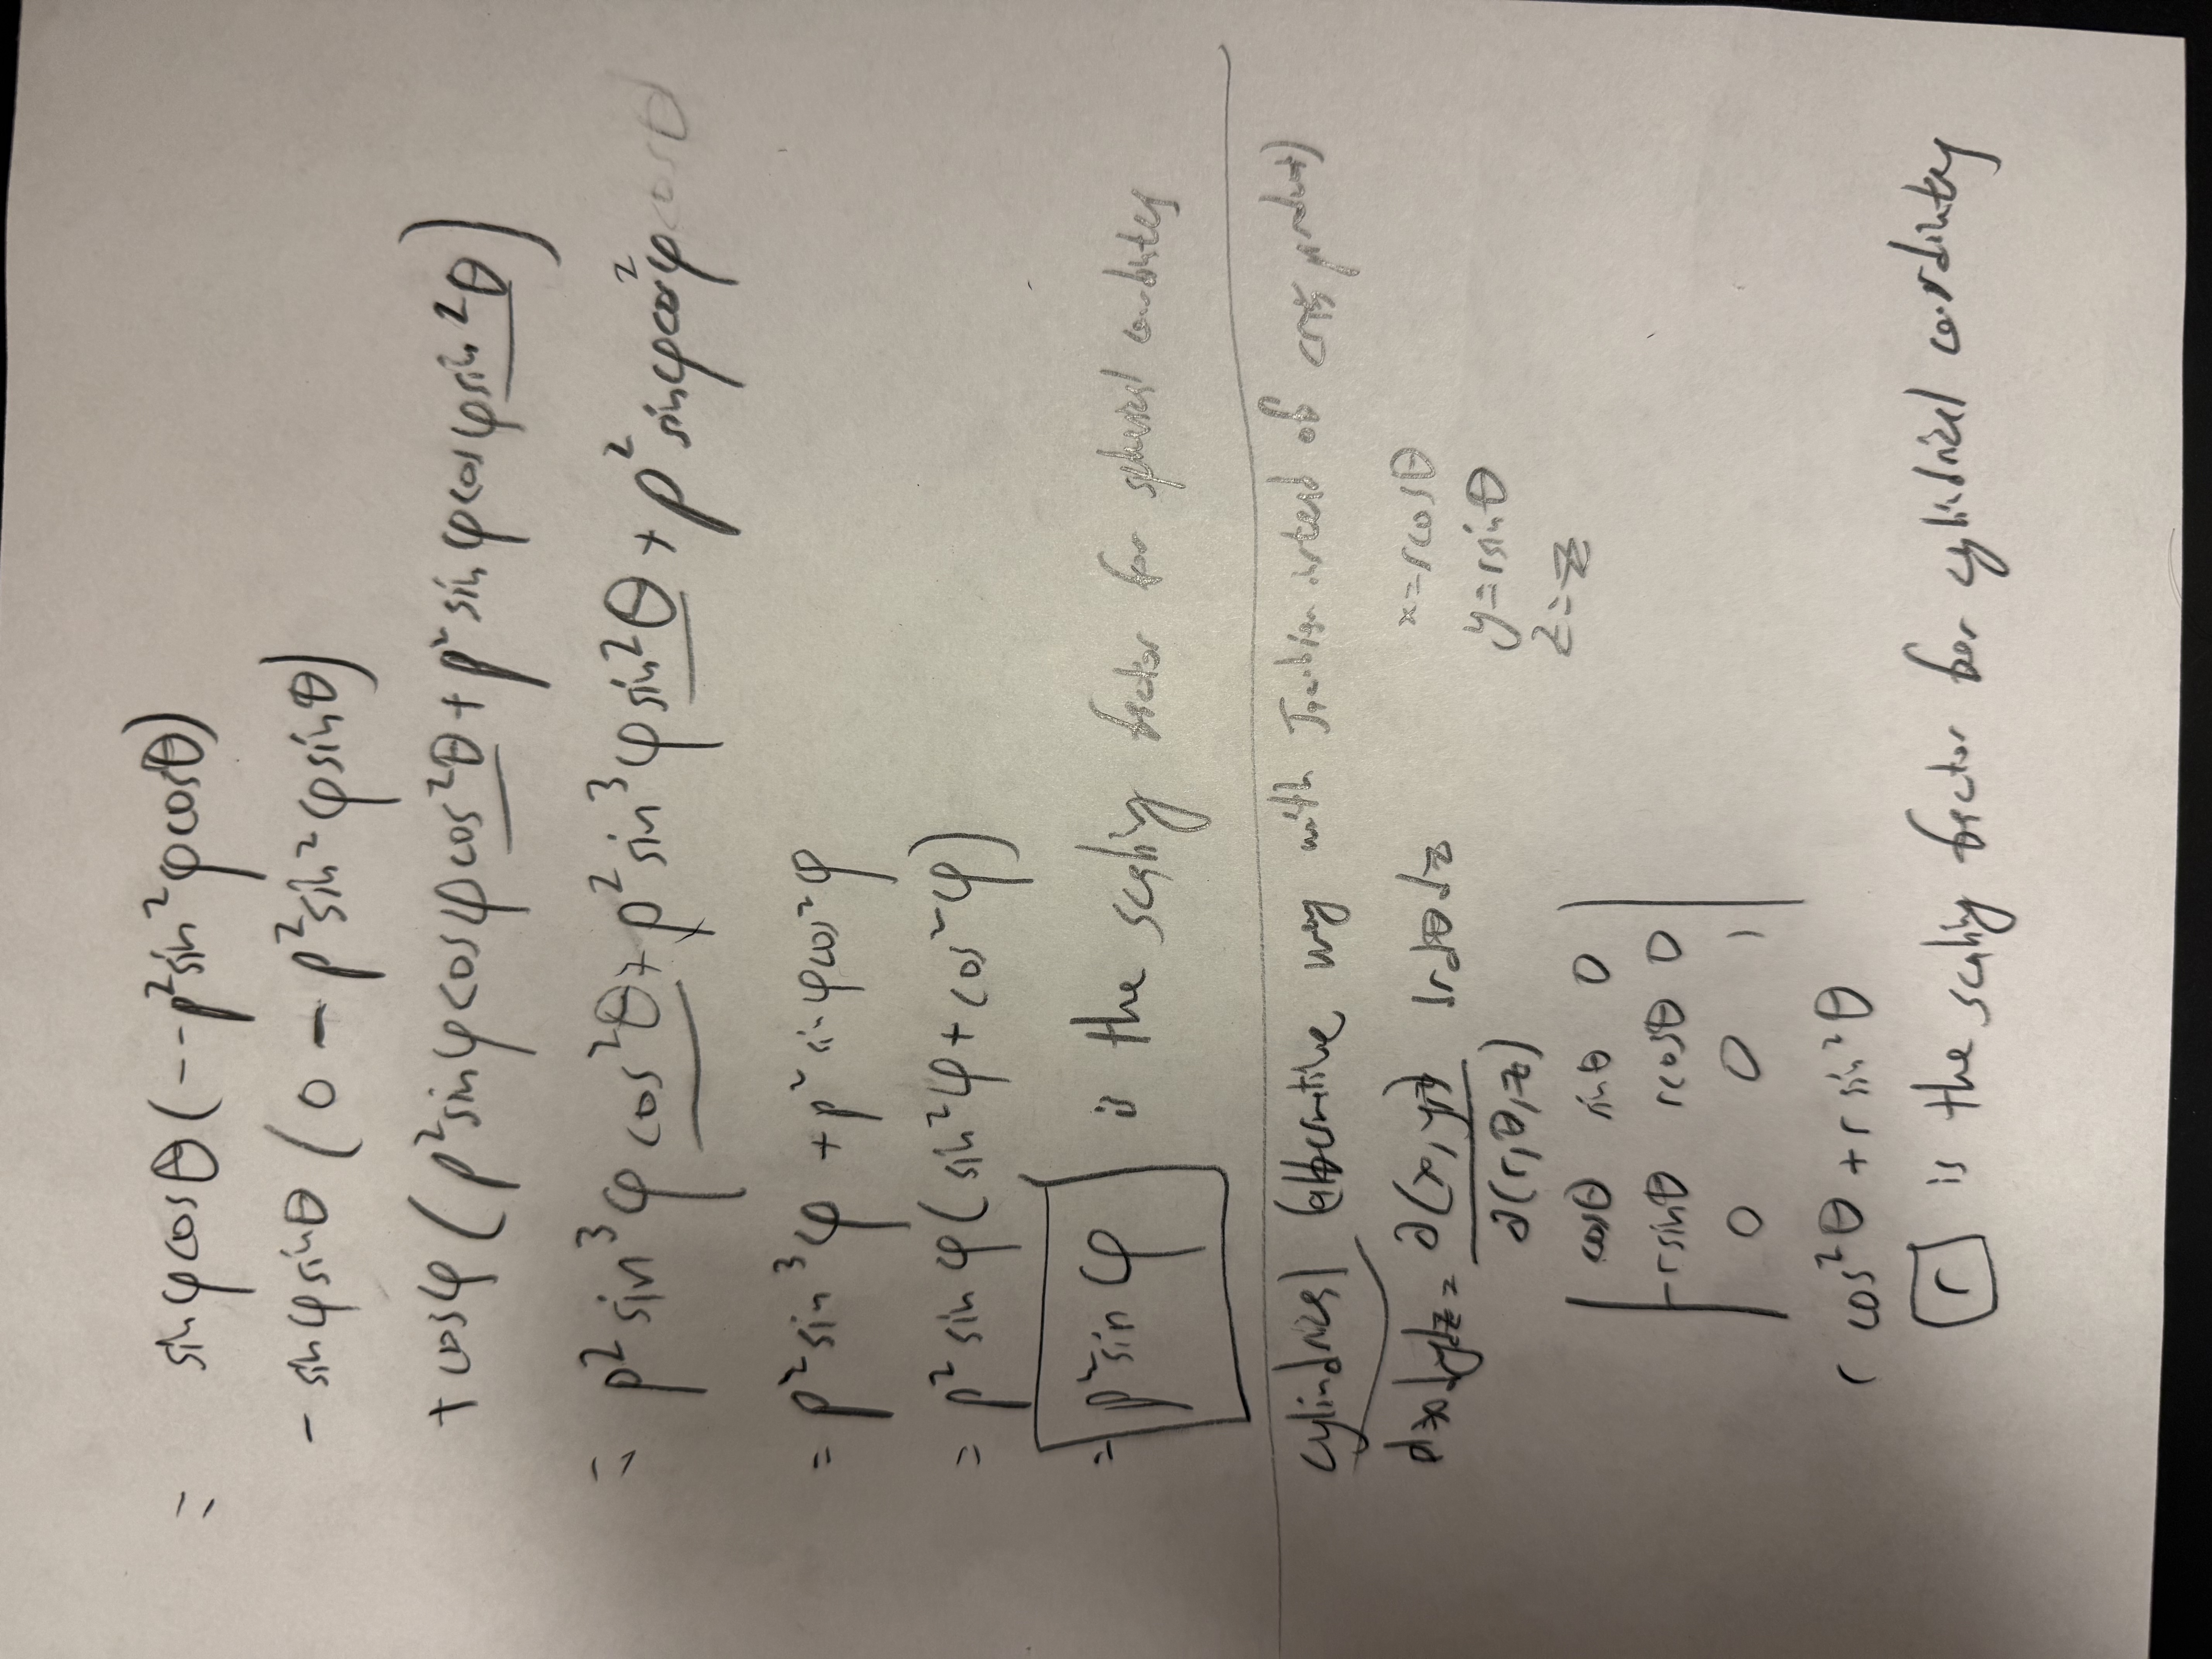 = sinφcosθ(--ρ²sin²φcosθ)
- sinφsinθ(0 - ρ²sin²φsinθ)
+ cosφ(ρ²sinφcosφcos²θ + ρ²sinφcosφsin²θ)
= ρ²sin³φcos²θ + ρ²sin³φsin²θ + ρ²sinφcosφ² cosθ
= ρ²sin³φ + ρ²sinφcos²φ
= ρ²sinφ(sin²φ + cos²φ)
= ρ²sinφ is the scaling factor for spherical
Cylindrical (alternitive way with Jacobian instead of cross product)
dxdydz = ∂(x,y,z) drdθdz
∂(r,θ,z)
x=rcosθ
y=rsinθ
z=z
cosθ sinθ 0
-rsinθ rcosθ 0
0 0 1
r cos²θ + r sin²θ
r is the scaling factor for cylindrical